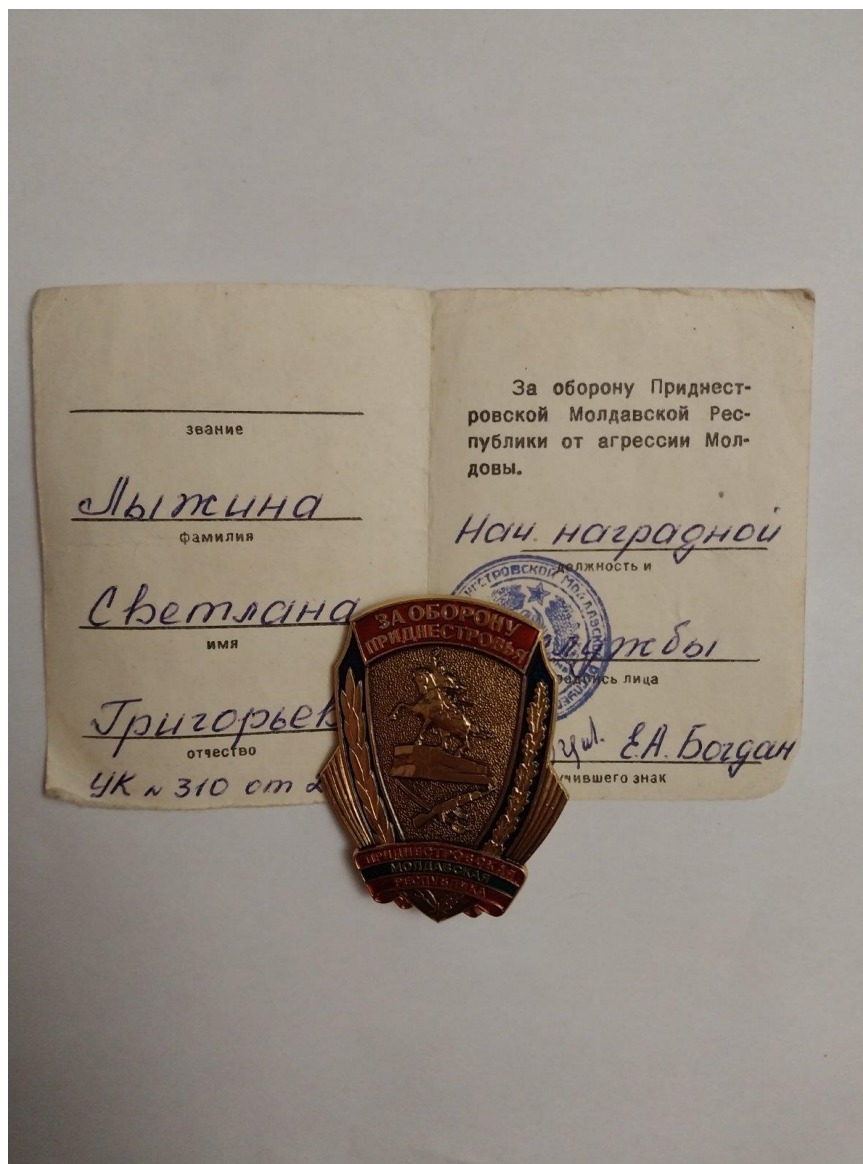 звание
Лыжина
фамилия
Светлана
имя
Григорьев
отчество
УК № 310 от 2
За оборону Приднест-
ровской Молдавской Рес-
публики от агрессии Мол-
довы.
Нач. наградной
должность и
службы
подпись лица
Е.А. Богдан
учившего знак
ЗА ОБОРОНУ
ПРИДНЕСТРОВЬЯ
ПРИДНЕСТРОВСКАЯ
МОЛДАВСКАЯ
РЕСПУБЛИКА